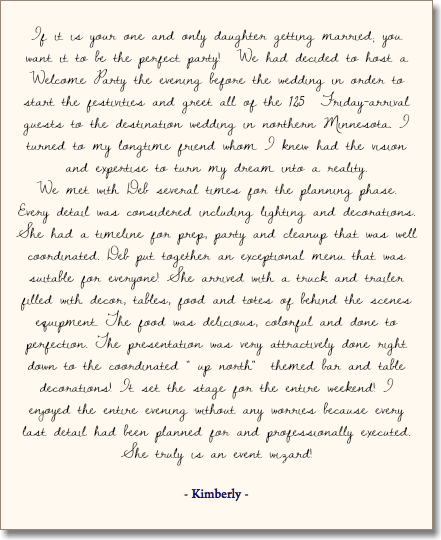 If it is your one and only daughter getting married, you
want it to be the perfect party! We had decided to host a
Welcome Party the evening before the wedding in order to
start the festivities and greet all of the 125 Friday-arrival
guests to the destination wedding in northern Minnesota. I
turned to my longtime friend whom I knew had the vision
and expertise to turn my dream into a reality.
We met with Deb several times for the planning phase.
Every detail was considered including lighting and decorations.
She had a timeline for prep, party and cleanup that was well
coordinated. Deb put together an exceptional menu that was
suitable for everyone! She arrived with a truck and trailer
filled with decor, tables, food and totes of behind the scenes
equipment. The food was delicious, colorful and done to
perfection. The presentation was very attractively done right
down to the coordinated " up north" themed bar and table
decorations! It set the stage for the entire weekend! I
enjoyed the entire evening without any worries because every
last detail had been planned for and professionally executed.
She truly is an event wizard!
- Kimberly -